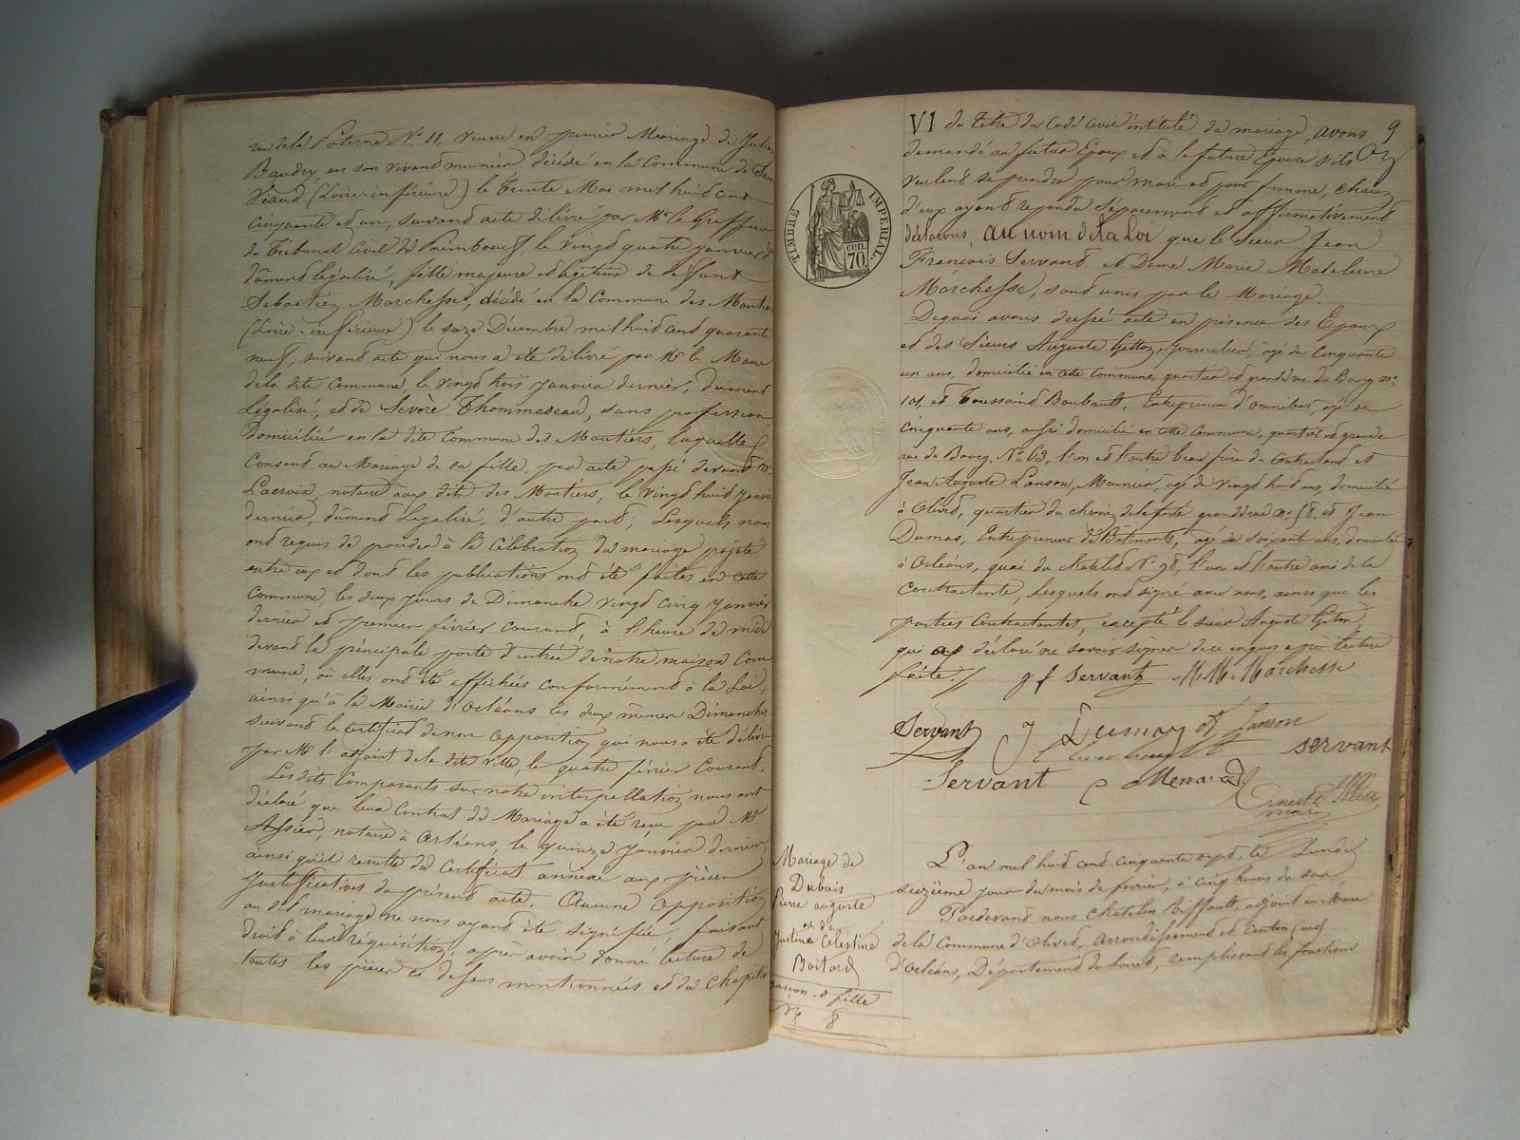 rue de la Poterne No 11, veuve en premier Mariage de Julien
Baudry, en son vivant meunier décédé en la Commune de St
Viaud (Loire-inférieure) le trente Mai mil huit cent
cinquante et un, suivant acte délivré par Mr le Greffier
du Tribunal Civil de Paimboeuf le vingt quatre janvier
dûment légalisé, fille majeure et légitime de defunt
Sebastien Marchesse, décédé en la Commune des Moutiers
(Loire-inférieure) le seize Décembre mil huit cent quarante
neuf, suivant acte qui nous a été délivré par Mr le Maire
de la dite Commune, le vingt trois janvier dernier, dûment
légalisé, et de Thommeseau, sans profession
domiciliée en la dite Commune des Moutiers, laquelle
Consent au Mariage de sa fille, par acte passé devant Me
Lacroix, notaire aux dits des Moutiers, le vingt huit janvier
dernier, dûment légalisé, d'autre part, Lesquels nous
ont requis de procéder à la Célébration du mariage projeté
entre eux et dont les publications ont été faites en cette
Commune, les deux jours de Dimanche vingt cinq janvier
dernier et premier février courant, à l'heure de midi
devant la principale porte d'entrée de notre maison Com
mune, où elles ont été affichées conformément à la Loi,
ainsi qu'à la Mairie d'Orléans les deux mêmes Dimanches
suivant le certificat de non opposition qui nous a été délivré
par Mr l'adjoint de la dite Ville, le quatre février Courant.
Les dits Comparants sur notre interpellation nous ont
déclaré que leur Contrat de Mariage a été reçu par Me
Assier, notaire à Orléans, le quinze janvier dernier
ainsi qu'il résulte du certificat annexé aux pièces
justificatives du présent acte. Aucune opposition
au dit mariage ne nous ayant été signifiée, faisant
droit à leur réquisition, après avoir donné lecture de
toutes les pièces ci dessus mentionnées et du Chapitre
9
VI du Titre du Code Civil intitulé du mariage, avons
demandé au futur Epoux et à la future Epouse s'ils
veulent se prendre pour mari et pour femme, chacun
d'eux ayant répondu séparément et affirmativement
déclarons, au nom de la loi que le sieur Jean
François Servant et Dame Marie Madeleine
Marchesse, sont unis par le Mariage.
De quoi avons dressé acte en présence des Epoux
et des Sieurs Auguste Getton, journalier, agé de Cinquante
un ans, domicilié en cette Commune, quartier et grande rue du Bourg no
101, et Toussaint Boubault, Entrepreneur d'omnibus, agé de
Cinquante ans, aussi domicilié en cette Commune, quartier et grande
rue du Bourg No 63, l'un et l'autre beau frère du Contractant et
Jean Auguste Lanson, Meunier, agé de vingt huit ans, domicilié
à Olivet, quartier du chemin de la forte grande rue no 58, et Jean
Dumas, Entrepreneur de Bâtiments, agé de soixante ans, domicilié
à Orléans, quai du chatelet No 98, l'un et l'autre ami de la
Contractante, Lesquels ont signé avec nous, ainsi que les
parties Contractantes, excepté le sieur Auguste Getton,
qui a déclaré ne savoir signer de ce enquis après lecture
faite.
j f Servant M. M. Marchesse
Servant J Dumas A Lanson
servant
Servant C Menard
Ernest
maire
TIMBRE IMPÉRIAL
CEN.
70
Mariage de
Dubois
Pierre auguste
et de
Justine Célestine
Boitard
garçon et fille
No 8
L'an mil huit cent cinquante sept, le Lundi
seizième jour du mois de février, à cinq heures du soir
Pardevant nous Chatelin Biffault adjoint au Maire
de la Commune d'Olivet, arrondissement et Canton (sud)
D'Orléans, Département du Loiret, remplissant les fonctions